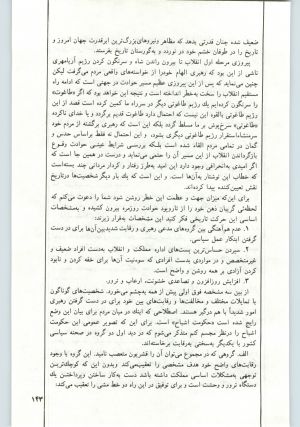 ضعیف شده چنان قدرتی بدهد که مظاهر و نیروهای بزرگ‌ترین ابرقدرت جهان امروز و
تاریخ را در طوفان خشم خود در نوردد و به‌گورستان تاریخ بفرستد.
پیروزی مرحله اول انقلاب تا بیرون راندن شاه و سرنگون کردن رژیم آریامهری
ناشی از این بود که رهبری الهام خود را از خواسته‌های واقعی مردم می‌گرفت لیکن
چنین می‌نماید که پس از این پیروزی عظیم مسیر حوادث در جهتی است که ادامه راه
مستقیم انقلاب را سخت به‌خطر انداخته است و نتیجه این خواهد بود که اگر «طاغوت»
را سرنگون کرده‌ایم یك رژیم طاغوتی دیگر در سر راه ما کمین کرده است قصد از این
رژیم طاغوتی بالقوه این نیست که احتمال دارد طاغوت قدیم برگردد و یا خدای ناکرده
«طاغوت» سرخ‌پوش بر ما مسلط گردد بلکه این است که رهبری برگشته از مردم خود
سر منشاء استقرار رژیم طاغوتی دیگری بشود، و این احتمال نه فقط براساس حدس و
گمان در تمامی مردم القاء شده است بلکه بررسی شرایط عینی حوادث وقوع
بازگرداندن انقلاب از این مسیر آن را حتمی می‌نماید و درست در همین جا است که
اگر امیدی به‌انحرافی وجود دارد این امید به‌طرز رفتار و کردار مردانی چند بسته‌است
که خطاب این نوشتار به‌آن‌ها است. و برای این است که هر یك از آن‌ها شخصیت‌ها در تاریخ
نقش تعیین‌کننده پیدا کرده‌اند.
برای این‌که میزان جهت و عظمت این خطر روشن شود شما را دعوت می‌کنم که
لحظه‌ئی گریبان ذهن خود را از تاروپود حوادث روزمره بیرون کشیده و به‌مشخصات
اساسی این حرکت تاریخی فکر کنید این مشخصات به‌قرار زیرند:
۱. عدم هم‌آهنگی بین گروه‌های مدعی رهبری و رقابت شدید بین آن‌ها برای در دست
گرفتن ابتکار عمل سیاسی.
۲. سپردن حساس‌ترین پست‌های اداره مملکت و انقلاب به‌دست افراد ضعیف و
غیرمتخصص و در مواردی به‌دست افرادی که سوءنیت آن‌ها برای خفه کردن و نابود
کردن آزادی بر همه روشن و واضح است.
۳. افزایش روزافزون و تصاعدی خشونت، ارعاب و ترور.
از بین سه مشخصه فوق اولی بیش از همه به‌چشم می‌خورد. شخصیت‌های گوناگون
با تمایلات مختلف و مخالفت‌ها و رقابت‌های بین خود برای در دست گرفتن رهبری
امور شدیداً با هم درگیر هستند. اصطلاحی که اینك در میان مردم برای بیان این وضع
رایج شده است «حکومت اشباح» است. برای این که تصویر عمومی این حکومت
اشباح را در نظر مجسم کنم متذکر می‌شوم که در دید اول دو گروه در صحنه سیاسی
کشور با یکدیگر به‌سختی به‌رقابت برخاسته‌اند.
الف. گروهی که در مجموع می‌توان آن را قشریون متعصب نامید. این گروه با وجود
رقابت‌های واضح خود هدف مشخصی را تعقیب می‌کنند و بدون این که کوچك‌ترین
توجهی به‌مشکلات اساسی مملکت داشته باشد دست به‌کار ساختن و پرداختن یك
دستگاه ترور و وحشت است و برای توفیق در این راه دو خط مشی را تعقیب می‌کند:
۱۴۳